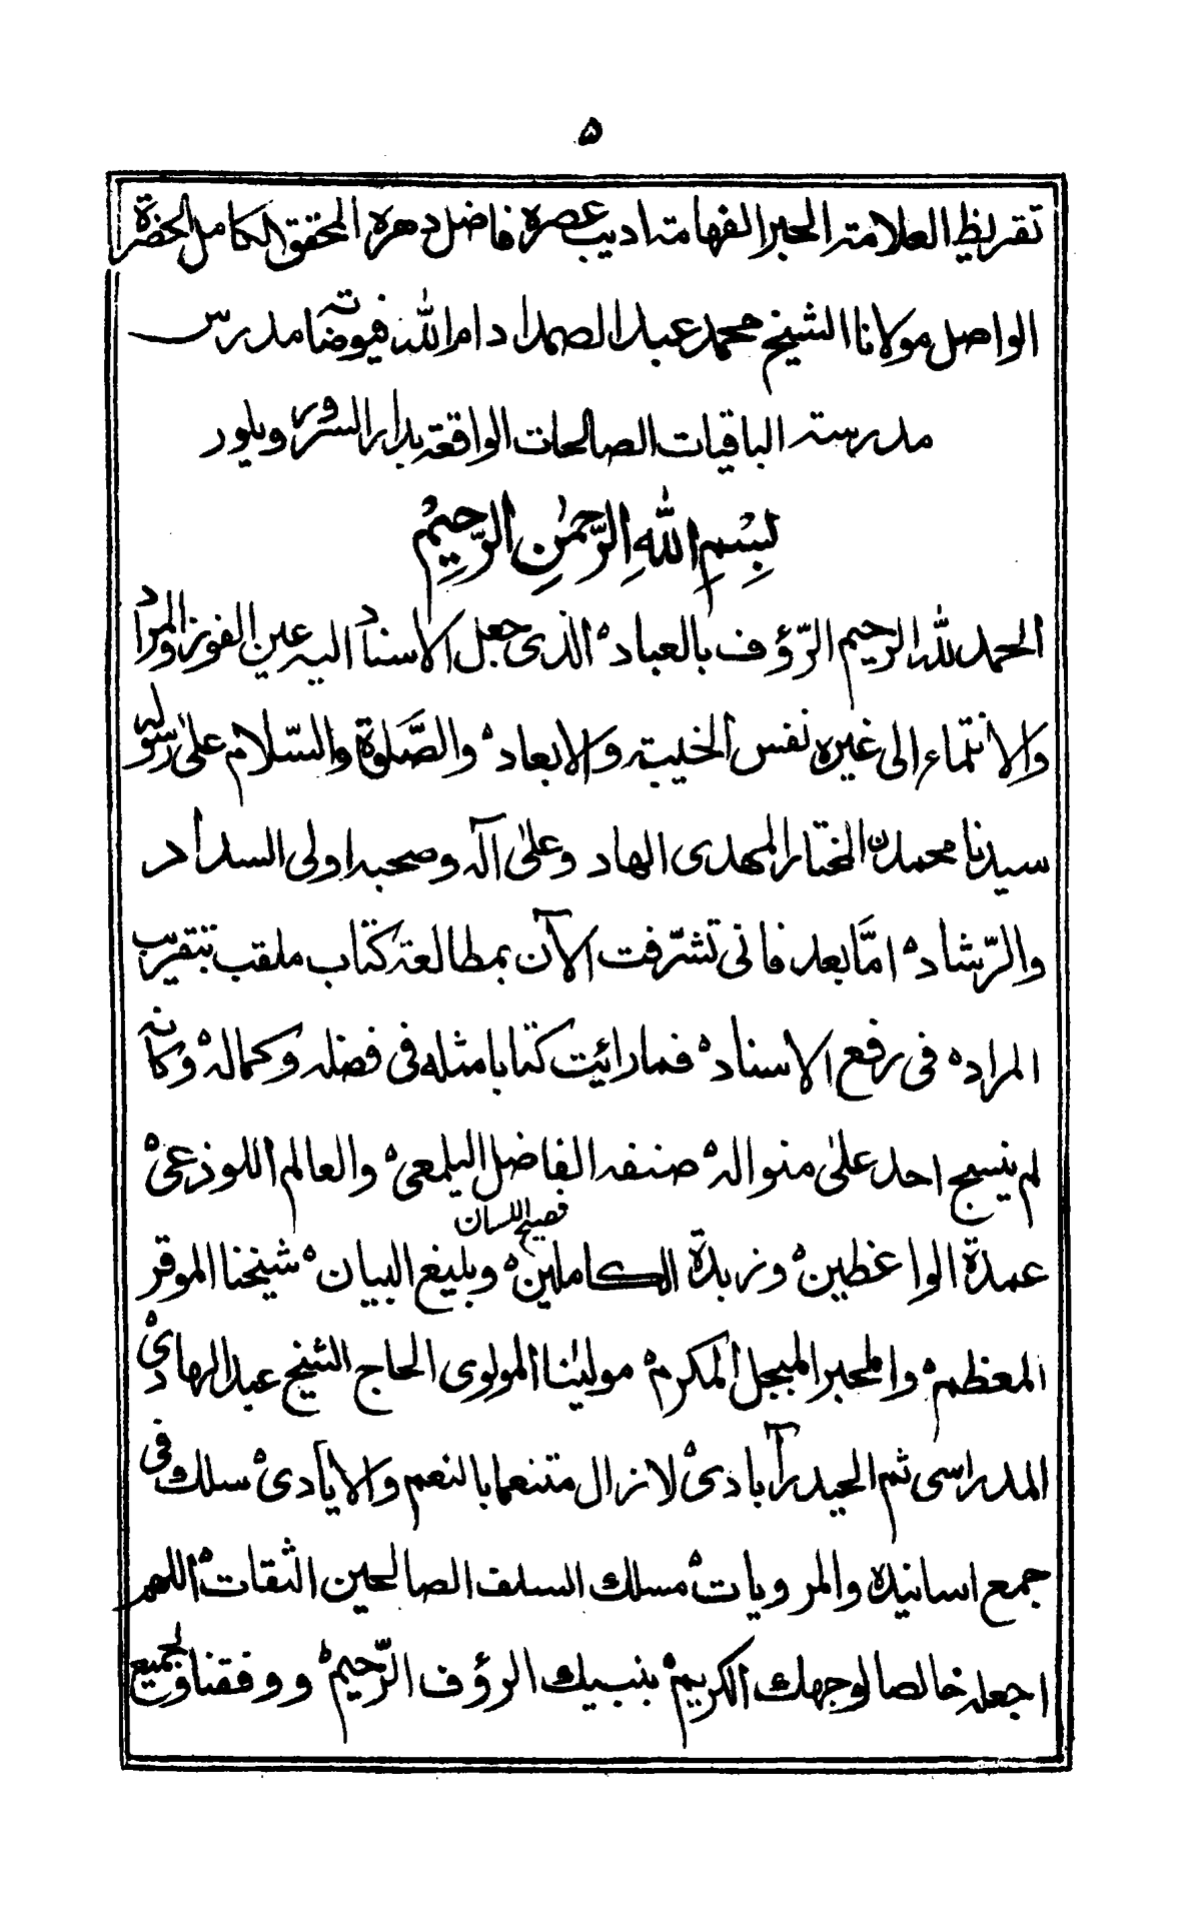 ۵
تقريظ العلامة الحبر الفهامة اديب عصره فاضل دهره المحقق الكامل الحضرة
الواصل مولانا الشيخ محمد عبد الصمد ادام الله فيوضاته مدرس
مدرسة الباقيات الصالحات الواقعة بدار السرور ويلور
بِسْمِ اللهِ الرَّحمٰنِ الرَّحِيْمْ
الحمد لله الرحيم الرّؤف بالعباد ہ الذى جعل الاسناد اليه عين الفوز والمراد
والانتماء الى غيره نفس الخيبة والابعاد ہ والصَّلوة والسّلام علىٰ رسوله
سيدنا محمدن المختار المهدى الهاد وعلىٰ آله وصحبه اولى السداد
والرّشاد ہ امّا بعد فانى تشرّفت الآن بمطالعة كتاب ملقب بتقريب
المراد ہ فى رفع الاسناد ہ فما رائيت كتابا مثله فى فضله وكماله ہ وكانه
لم ينسج احد علىٰ منواله ہ صنفه الفاضل اليلمعى ہ والعالم اللوذعى ہ
عمدة الواعظين ہ وزبدة الكاملين ہ فصيح اللسان وبليغ البيان ہ شيخنا الموقر
المعظم ہ والمحبر المبجل المكرم ہ موليٰنا المولوى الحاج الشيخ عبد الهادى ہ
المدراسى ثم الحيدرآبادى ہ لا زال متنعما بالنعم والايادى ہ سلك فى
جمع اسانيده والمرويات ہ مسلك السلف الصالحين الثقات ہ اللهم
اجعله خالصا لوجهك الكريم ہ بنبيك الرؤف الرّحيم ہ ووفقنا وجميع